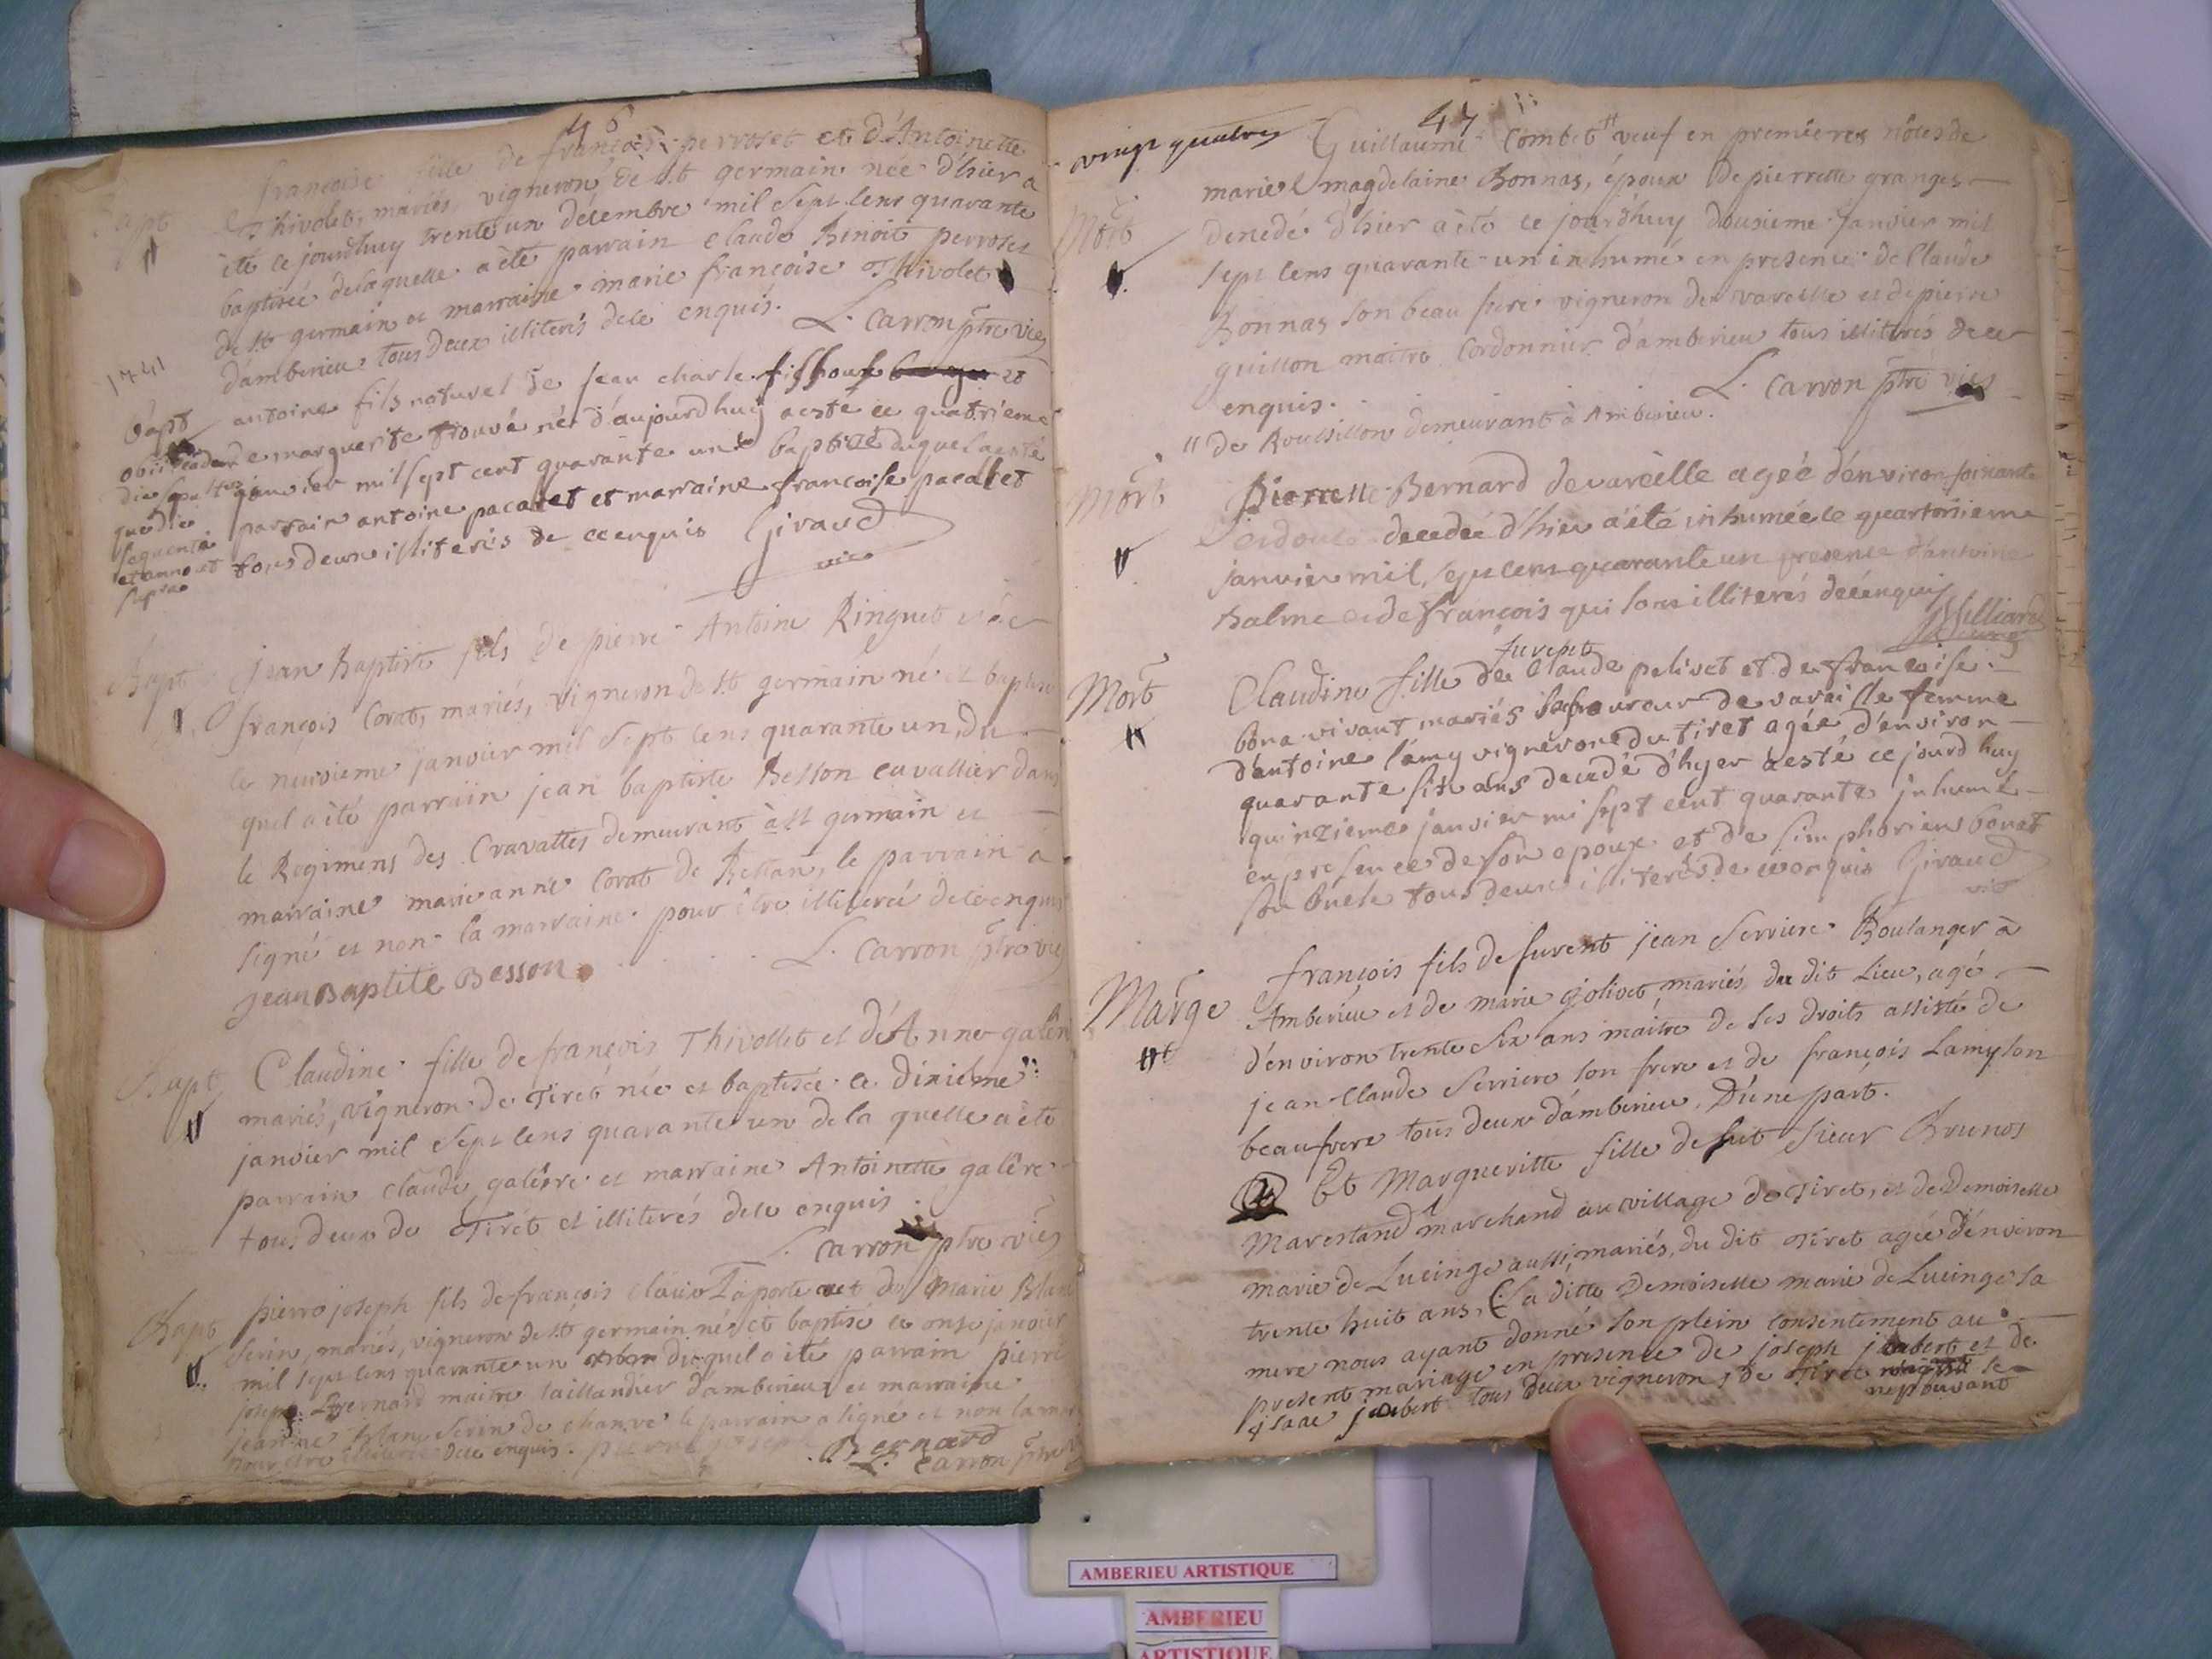 46
Bapt françoise fille de françois perroset et d'Antoinette
Thivolet, mariés, vigneron de st germain née d'hier a
été ce jourdhuy trente un décembre mil sept cens quarante
baptisée de laquelle a été parrain claude Benoit perroset
de st germain et marraine marie françoise Thivolet
d'amberieu tous deux illiterés de ce enquis. L. Carron ptre vic
1741
Bapt antoine fils naturel de jean charle
de marguerite trouvé né d'aujourdhuy a esté ce quatrieme
janvier mil sept cent quarante un baptisé duquel a esté
parrain antoine pacalet et marraine francoise pacalet
tous deux illiterés de ce enquis Giraud
vic
obiit eadem
die sepultus
que die
sequenti
et anno ut
supra
Bapt jean Baptiste fils de pierre Antoine Ringuet et de
françois Corat, mariés, vigneron de st germain né et baptisé
le neuvieme janvier mil sept cens quarante un, du
quel a été parrain jean baptiste Besson cavallier dans
le Regiment des Cravattes demeurant à st germain et
marraine marie anne Corat de Bettan, le parrain a
signé et non la marraine pour être illiterée de ce enquis
L. Carron ptre vic
jean Baptite Besson
Bapt Claudine fille de françois Thivollet et d'Anne galere
mariés, vigneron de Tiret née et baptisée le dixième
janvier mil sept cens quarante un de la quelle a été
parrain claude galere et marraine Antoinette galere
tous deux de Tiret et illiterés de ce enquis.
L. Carron ptre vic
Bapt pierre joseph fils de françois claude Laporte et de Marie Blanc
Serin, mariés, vigneron de st germain né et baptisé le onze janvier
mil sept cens quarante un duquel a été parrain pierre
joseph Bernard maitre taillandier d'amberieu et marraine
jeanne blanc Serin de chanve le parrain a signé et non la mar
pour etre illiterée de ce enquis. pierre joseph Bernard
L. Carron ptre
vingt quatre
47
Mort Guillaume Combet " veuf en premieres nôces de
marie magdelaine Bonnas, époux de pierrette granges
decedé d'hier a été ce jourd'huy douzieme janvier mil
sept cens quarante un inhumé en presence de Claude
Bonnas son beau frere vigneron de vareille et de pierre
guillon maitre Cordonnier d'amberieu tous illiterés de ce
enquis. L. Carron ptre vic
" de Roussillon demeurant à Amberieu.
Mort pierrette Bernard de vareille agée d'environ soixante
et douze decedée d'hier a été inhumée le quartorsieme
janvier mil sept cens quarante un presence d'antoine
balme et de françois qui sont illiterés de ce enquis
Milliard
Mort Claudine fille de furent Claude pelivet et de francoise
bona vivant mariés laboureur de vareille femme
d'antoine lamy vigneron du tiret agée d'environ
quarante six ans decedé d'hyer a esté ce jourd huy
quinzieme janvier mi sept cent quarante inhumé
en presence de son epoux et de simphorien bonat
son oncle tous deux illiterés de ce enquis Giraud
vic
Marge françois fils de furent jean Serriere Boulanger à
Amberieu et de marie jolivet mariés du dit Lieu, agé
d'environ trente six ans maitre de ses droits assisté de
jean Claude Serriere son frere et de françois Lamy son
beaufrere tous deux d'amberieu. D'une part.
Et Margueritte fille de fut sieur Brunos
Marestand marchand au village de Tiret, et de Demoiselle
marie de Lucinge aussi mariés, du dit Tiret agée d'environ
trente huit ans, la ditte Demoiselle marie de Lucinge sa
mere nous ayant donné son plein consentement au
present mariage en presence de joseph joubert et de
isaac joubert tous deux vigneron de Tiret se
ne pouvant
AMBERIEU ARTISTIQUE
AMBERIEU
ARTISTIQUE